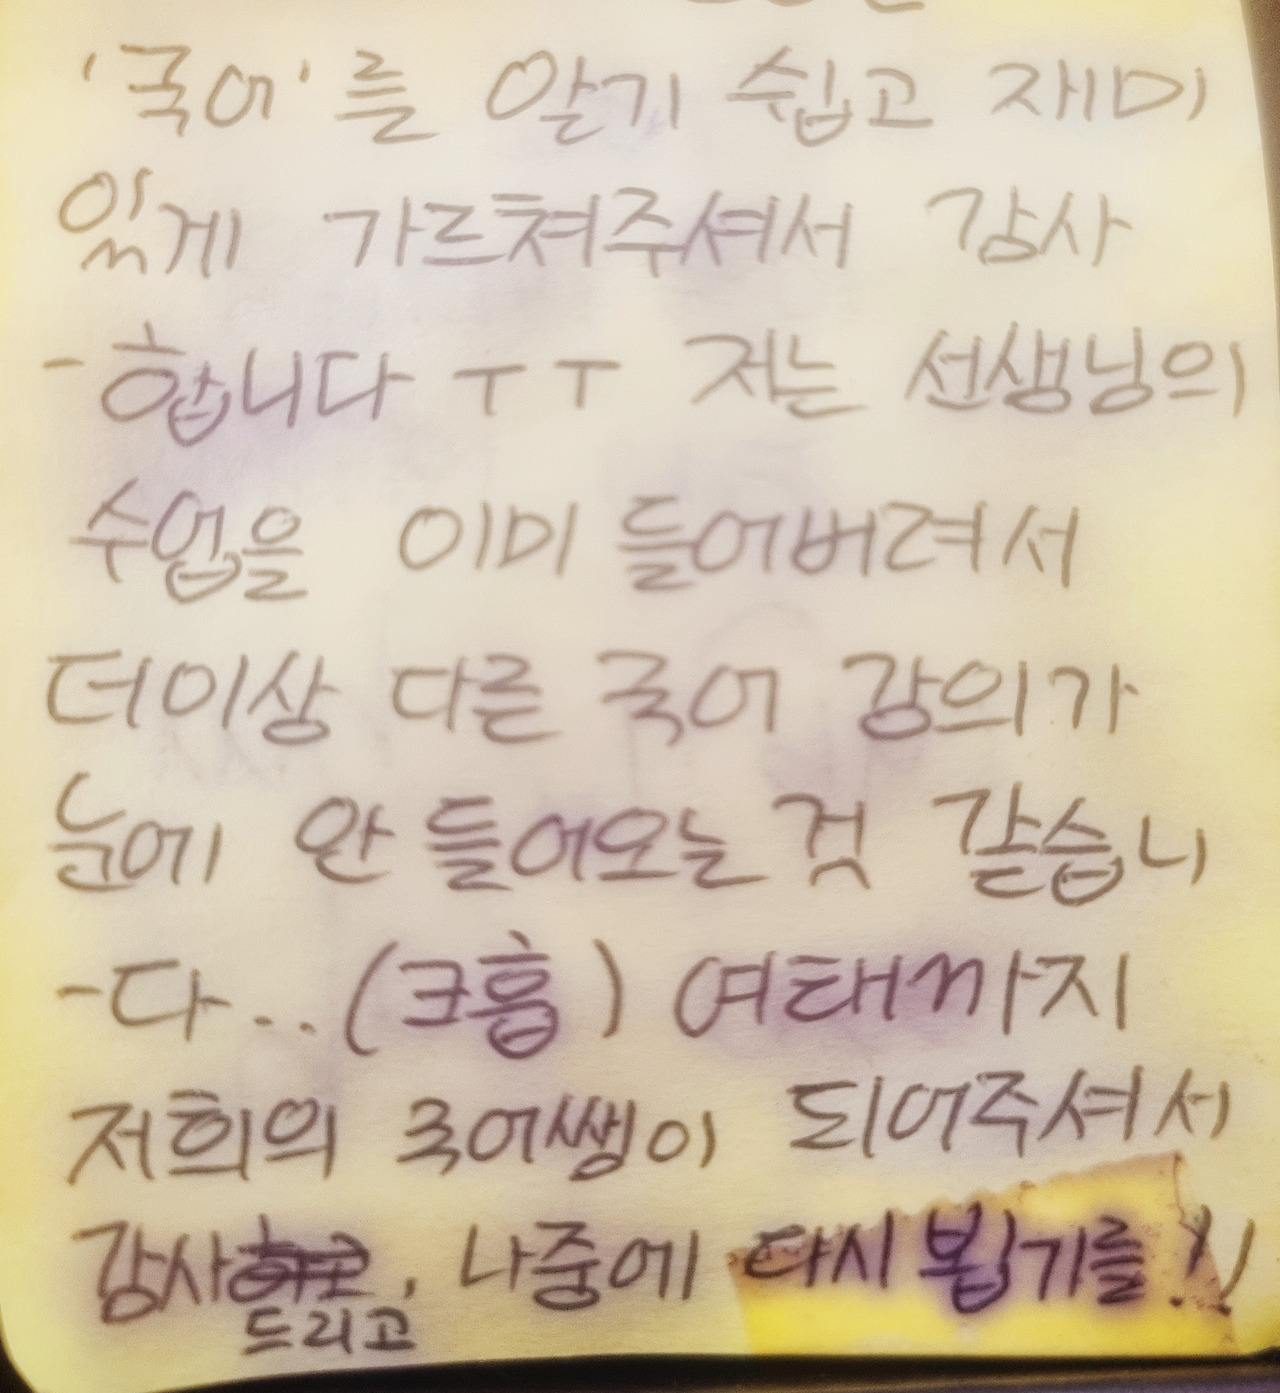 '국어'를 알기 쉽고 재미
있게 가르쳐주셔서 감사
-합니다 ㅜㅜ 저는 선생님의
수업을 이미 들어버려서
더이상 다른 국어 강의가
눈에 안 들어오는 것 같습니
-다.. (크흡) 여태까지
저희의 국어쌤이 되어주셔서
감사드리고, 나중에 다시 뵙기를!!